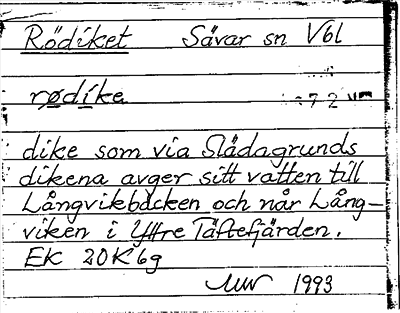 Rödiket Sävar sn Vbl
rødike
dike som via Slädagrunds
dikena avger sitt vatten till
Långvikbäcken och når Lång-
viken i Yttre Täftefjärden.
EK 20K6g
1993